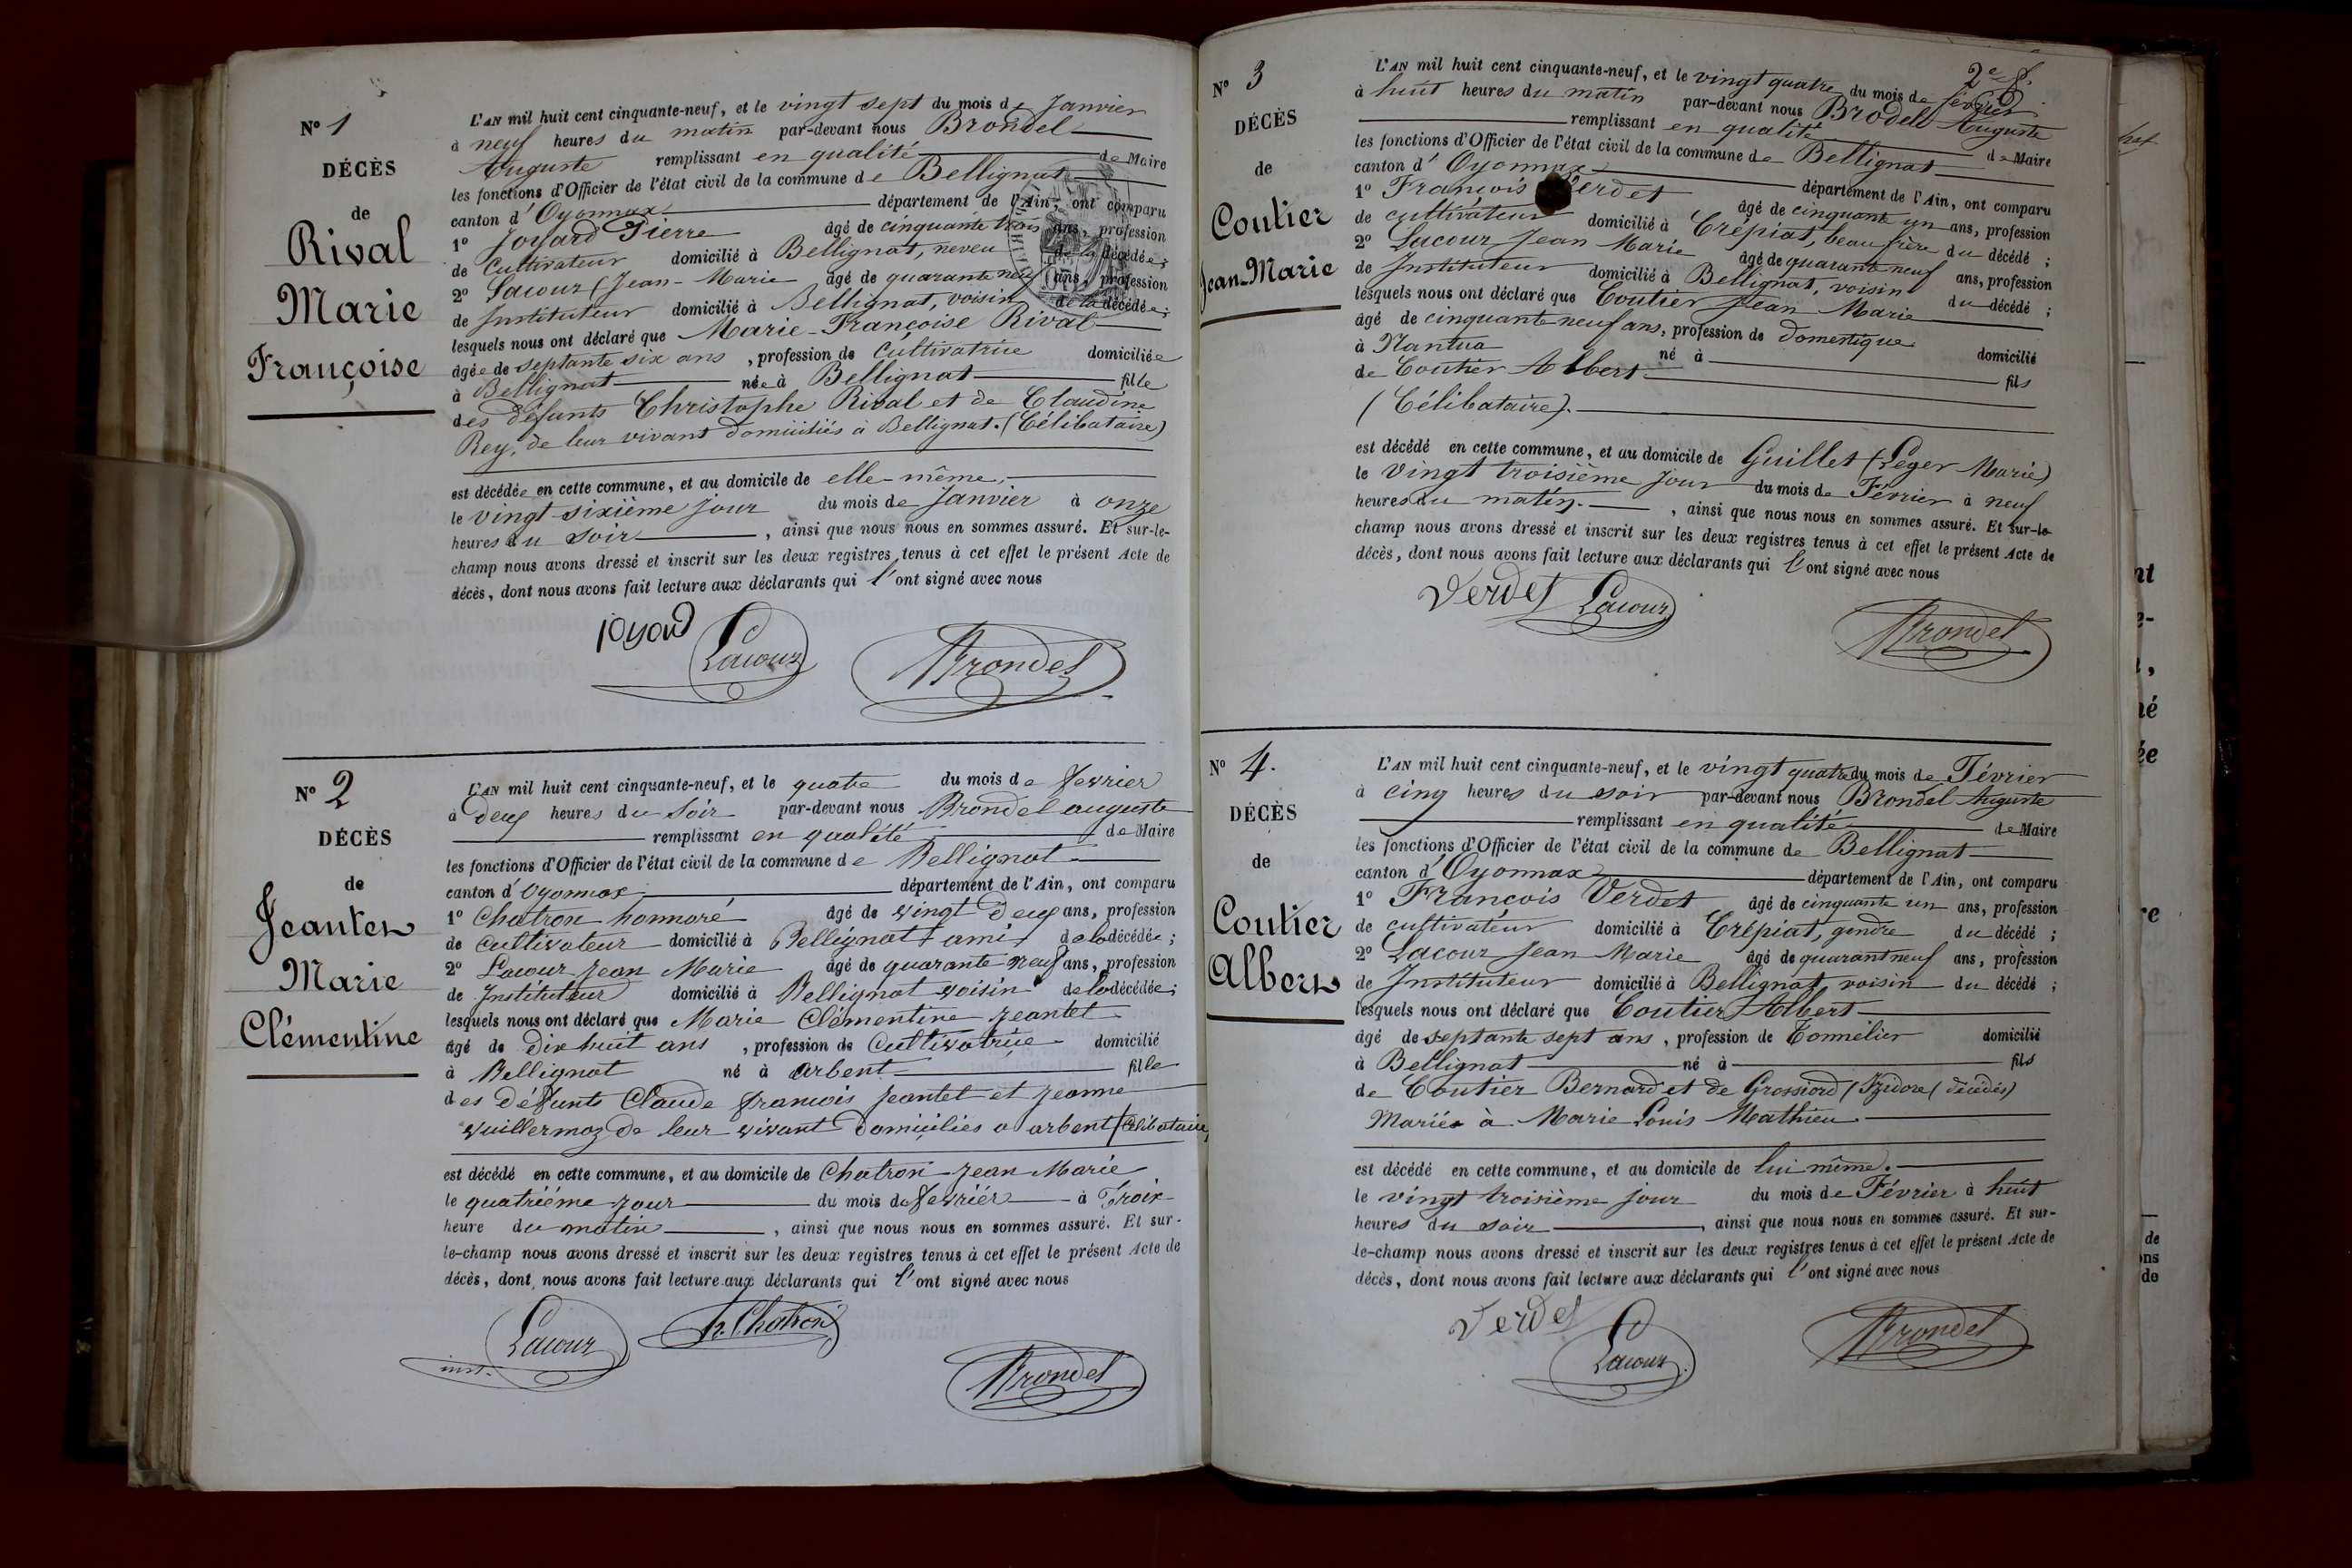 N° 1
DÉCÈS
de
Rival
Marie
Françoise
L'AN mil huit cent cinquante-neuf, et le vingt sept du mois de Janvier
à neuf heures du matin par-devant nous Brondel
Auguste remplissant en qualité de Maire
les fonctions d'Officier de l'état civil de la commune de Bellignat
canton d'Oyonnax département de l'Ain, ont comparu
1° Joyard Pierre âgé de cinquante trois ans, profession
de Cultivateur domicilié à Bellignat, neveu de la décédée;
2° Lacour (Jean-Marie âgé de quarante neuf ans, profession
de Instituteur domicilié à Bellignat, voisin de la décédée;
lesquels nous ont déclaré que Marie-Françoise Rival
âgée de septante six ans, profession de Cultivatrice domiciliée
à Bellignat née à Bellignat fille
des défunts Christophe Rival et de Claudine
Rey, de leur vivant domiciliés à Bellignat. (Célibataire)
est décédée en cette commune, et au domicile de elle-même,
le vingt-sixième jour du mois de Janvier à onze
heures du soir, ainsi que nous nous en sommes assuré. Et sur-le-
champ nous avons dressé et inscrit sur les deux registres tenus à cet effet le présent Acte de
décès, dont nous avons fait lecture aux déclarants qui l'ont signé avec nous
joyard Lacour Brondel
N° 2
DÉCÈS
de
Jeantet
Marie
Clémentine
L'AN mil huit cent cinquante-neuf, et le quatre du mois de fevrier
à deux heures du Soir par-devant nous Brondel auguste
remplissant en qualité de Maire
les fonctions d'Officier de l'état civil de la commune de Bellignat
canton d'Oyonnax département de l'Ain, ont comparu
1° Chatron honnoré âgé de vingt deux ans, profession
de Cultivateur domicilié à Bellignat ami de la décédée;
2° Lacour Jean Marie âgé de quarante neuf ans, profession
de Instituteur domicilié à Bellignat voisin de la décédée;
lesquels nous ont déclaré que Marie Clémentine Jeantet
âgé de dix huit ans, profession de Cultivatrice domicilié
à Bellignat né à arbent fille
des défunts Claude francois Jeantet et Jeanne
vuillermoz de leur vivant domiciliés a arbent (Célibataire)
est décédé en cette commune, et au domicile de Chatron Jean Marie
le quatriéme jour du mois de fevriér à Troix
heure du matin, ainsi que nous nous en sommes assuré. Et sur-
le-champ nous avons dressé et inscrit sur les deux registres tenus à cet effet le présent Acte de
décès, dont nous avons fait lecture aux déclarants qui l'ont signé avec nous
Lacour h. Chatron
inst.
Brondel
2e f.
N° 3
DÉCÈS
de
Coutier
Jean-Marie
L'AN mil huit cent cinquante-neuf, et le vingt quatre du mois de février
à huit heures du matin par-devant nous Brodel Auguste
remplissant en qualité de Maire
les fonctions d'Officier de l'état civil de la commune de Bellignat
canton d'Oyonnax département de l'Ain, ont comparu
1° François Verdet âgé de cinquante un ans, profession
de cultivateur domicilié à Crépiat, beau frère du décédé;
2° Lacour Jean Marie âgé de quarante neuf ans, profession
de Instituteur domicilié à Bellignat, voisin du décédé;
lesquels nous ont déclaré que Coutier Jean Marie
âgé de cinquante neuf ans, profession de domestique domicilié
à Nantua né à fils
de Coutier Albert
(Célibataire).
est décédé en cette commune, et au domicile de Guillet (Leger Marie)
le vingt troisième jour du mois de Février à neuf
heures du matin., ainsi que nous nous en sommes assuré. Et sur-le-
champ nous avons dressé et inscrit sur les deux registres tenus à cet effet le présent Acte de
décès, dont nous avons fait lecture aux déclarants qui l'ont signé avec nous
Verdet Lacour
Brondel
N° 4.
DÉCÈS
de
Coutier
Albert
L'AN mil huit cent cinquante-neuf, et le vingt quatre du mois de Février
à cinq heures du soir par-devant nous Brondel Auguste
remplissant en qualité de Maire
les fonctions d'Officier de l'état civil de la commune de Bellignat
canton d'Oyonnax département de l'Ain, ont comparu
1° François Verdet âgé de cinquante un ans, profession
de cultivateur domicilié à Crépiat, gendre du décédé;
2° Lacour Jean Marie âgé de quarant neuf ans, profession
de Instituteur domicilié à Bellignat, voisin du décédé;
lesquels nous ont déclaré que Coutier Albert
âgé de septante sept ans, profession de Tonnelier domicilié
à Bellignat né à fils
de Coutier Bernard et de Grossiord (Izidore (décédés)
Mariée à Marie Louis Mathieu
est décédé en cette commune, et au domicile de lui même.
le vingt troisième jour du mois de Février à huit
heures du soir, ainsi que nous nous en sommes assuré. Et sur-
le-champ nous avons dressé et inscrit sur les deux registres tenus à cet effet le présent Acte de
décès, dont nous avons fait lecture aux déclarants qui l'ont signé avec nous
Verdet Lacour Brondel